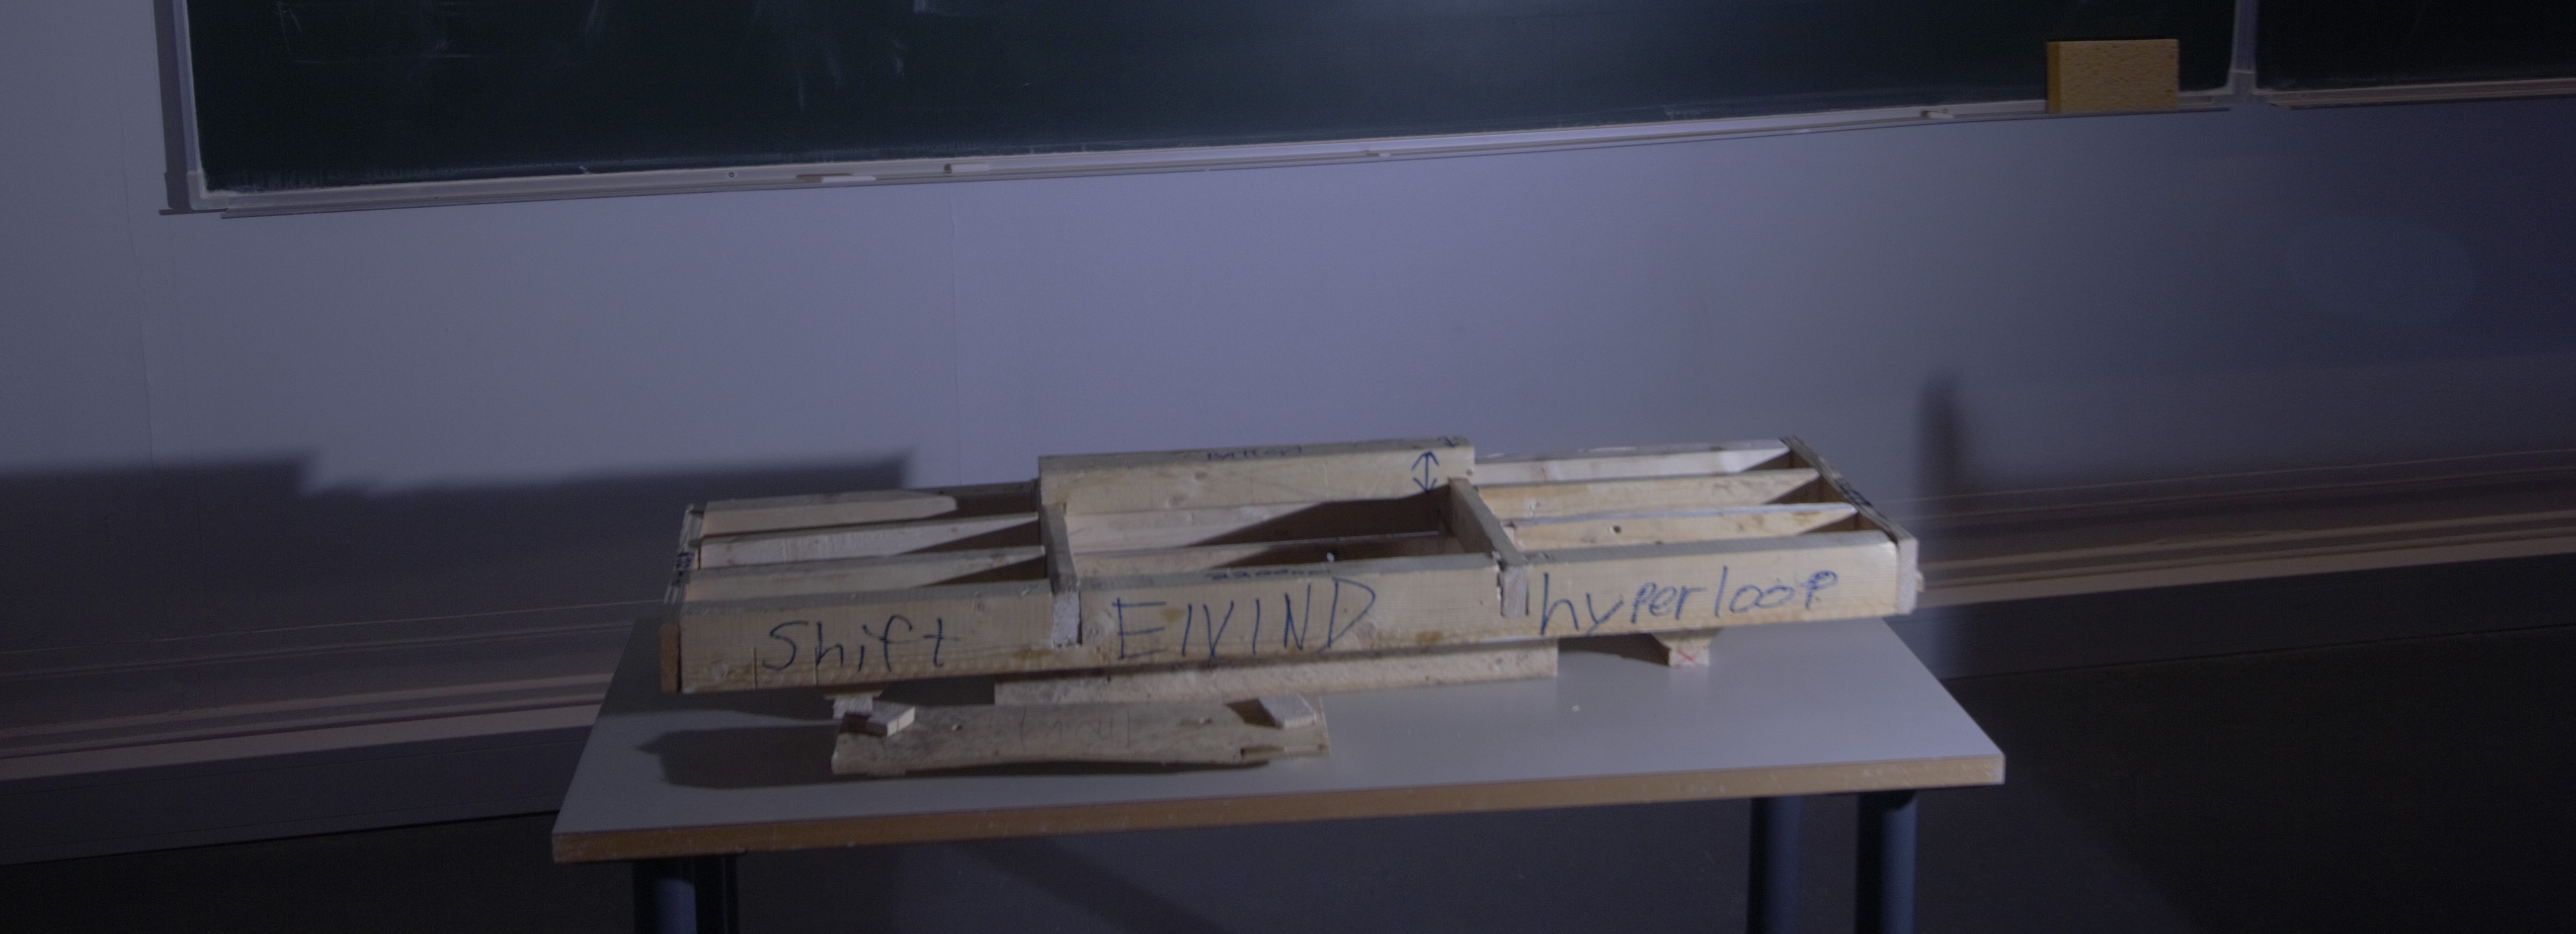 Shift EIVIND hyperloop